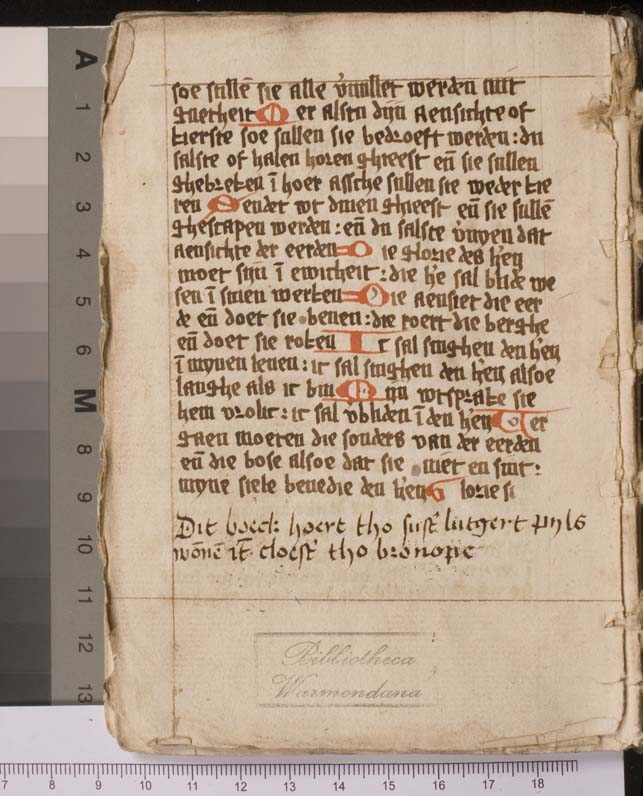 soe sullē sie alle v̉uullet werden mit
guetheit M er alstu dijn aensichte of
kierste soe sullen sie bedroeft werden: du
salste of halen horen gheest eñ sie sullen
ghebreken ī hoer assche sullen sie weder kie
ren S endet wt dinen gheest eñ sie sullē
ghescapen werden: eñ du salste v̉nyen dat
aensichte der eerden D ie glorie des h'en
moet sijn ī ewicheit: die h'e sal blide we
sen ī sinen werken D ie aensiet die eer
de eñ doet sie beuen: die roert die berghe
eñ doet sie roken I c sal singhen den h'en
ī mynen leuen: ic sal singhen den h'en alsoe
langhe als ic bin M ijn wtsprake sie
hem vrolic: ic sal v̉bliden ī den h'en V er
gaen moeten die sonders van der eerden
eñ die bose alsoe dat sie niet en sint:
myne siele benedie den h'en G lorie si
Dit boeck hoert tho sust' lutgert pyls
wonē īt cloest' tho bronope
Bibliotheca
Warmondana
A
1
2
3
4
5
6
M
8
9
10
11
12
13
7 8 9 10 11 12 13 14 15 16 17 18